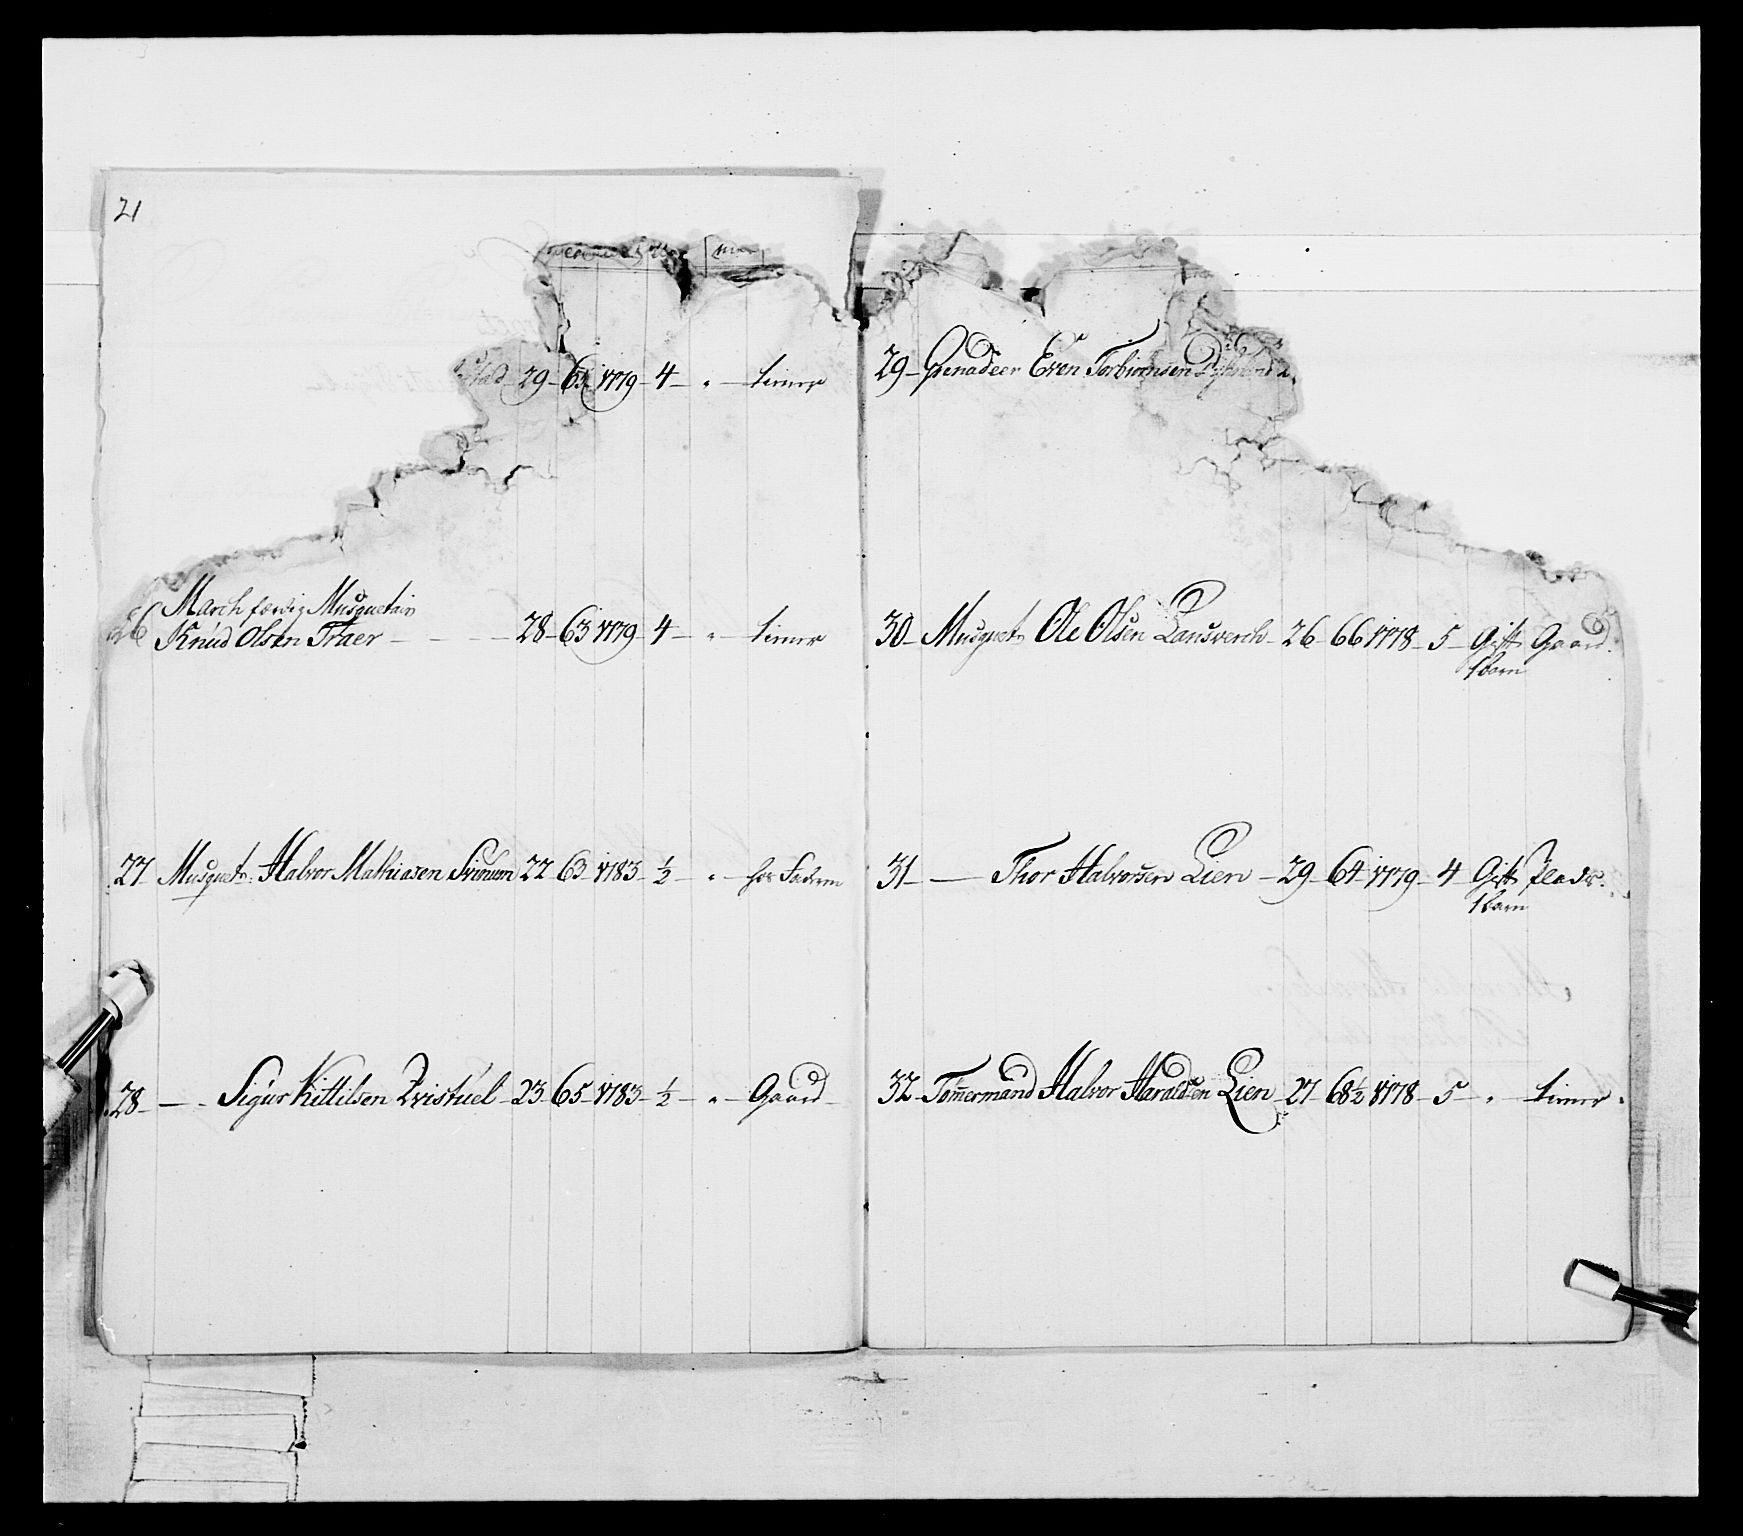 21
29 - 63 - 1779 - 4 - " - tienner
26 March færdig Musquetair
Knud Olsen Traer - - - 28 - 63 1779 - 4 - " - tienner
27 Musquet: Halvor Mathiasen 22 63 1783 ½ - " - hos Faderen
28 - — - Sigur Kittilsen Qvistuel - 23 - 65 - 1783 - ½ - " - Gaard -
29 - Grenadeer Even Torbiørnsen
30 - Musquet Ole Olsen Lansverch - 26 - 66 1778 - 5 - Gift Gaard.
1 barn
31 - — Thor Halvorsen Lien - 29 - 64 - 1779 - 4 Gift Plads.
1 barn
32 - Tømmermand Halvor Haraldsen Lien - 27 - 68½ 1778 - 5 - " - tienner.